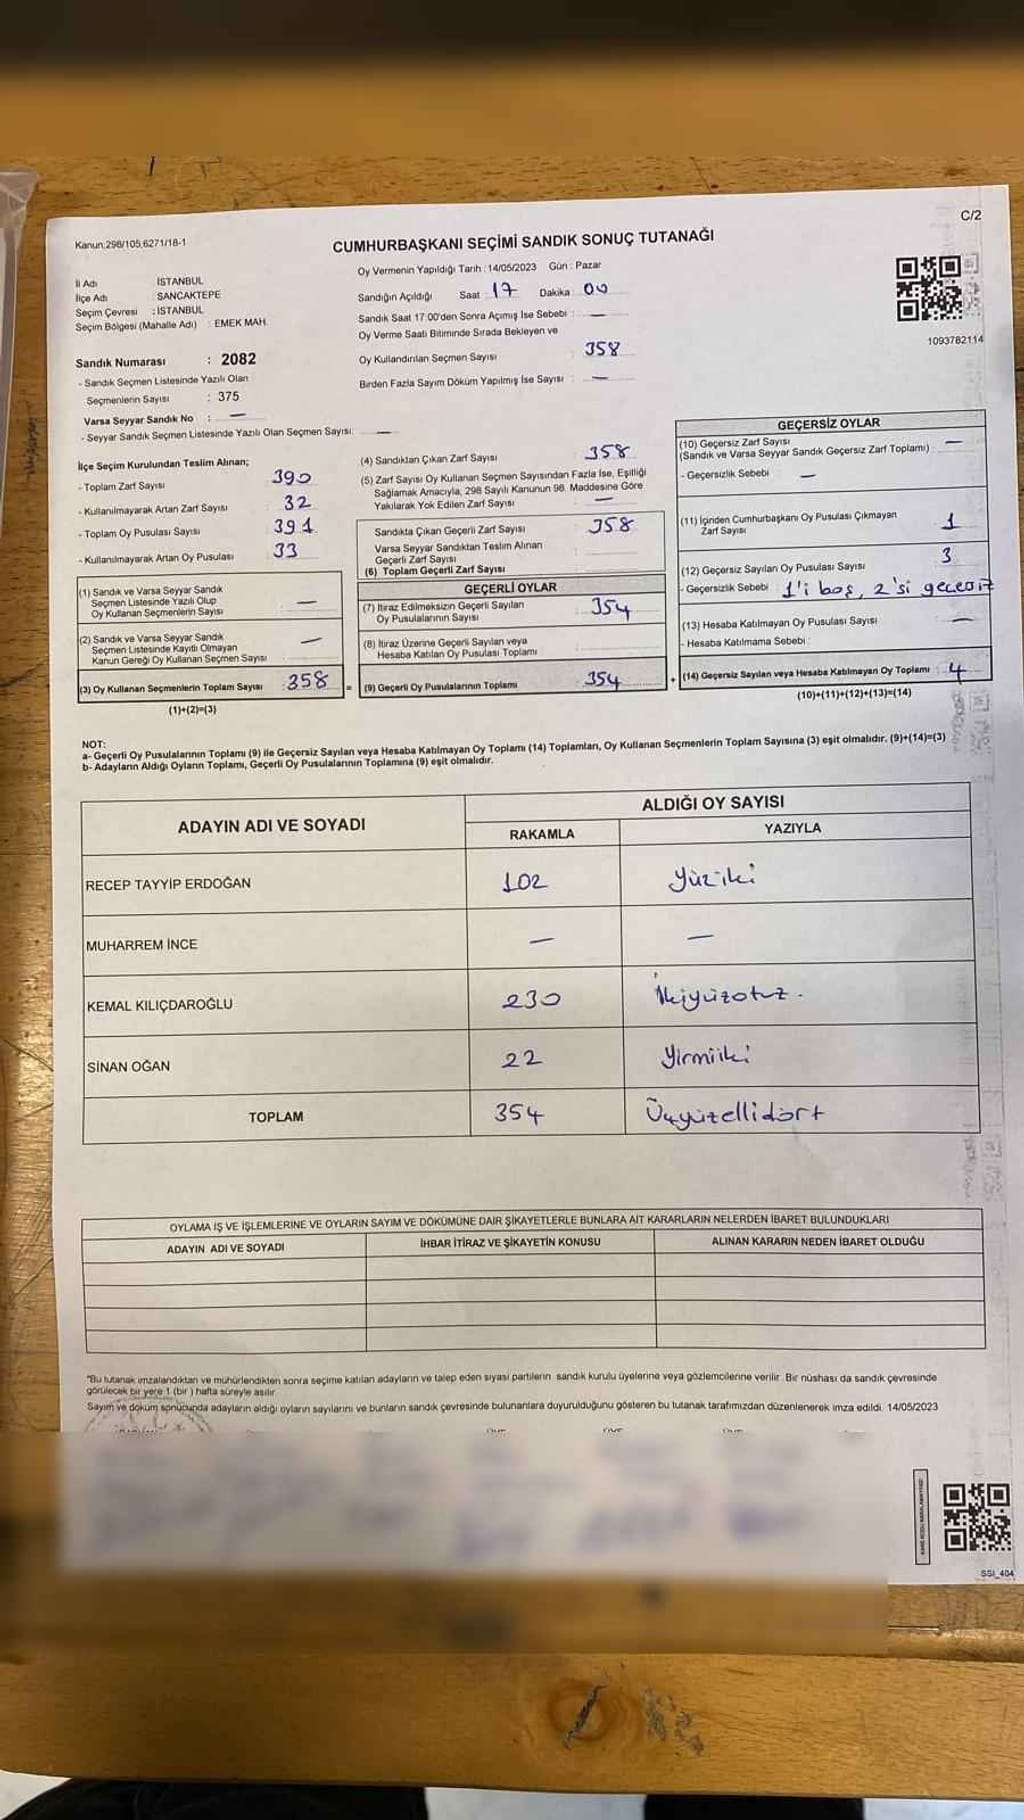 C/2
Kanun:298/105,6271/18-1
CUMHURBAŞKANI SEÇİMİ SANDIK SONUÇ TUTANAĞI
İl Adı İSTANBUL
İlçe Adı SANCAKTEPE
Seçim Çevresi : İSTANBUL
Seçim Bölgesi (Mahalle Adı) : EMEK MAH.
Sandık Numarası : 2082
- Sandık Seçmen Listesinde Yazılı Olan
Seçmenlerin Sayısı : 375
Varsa Seyyar Sandık No : —
- Seyyar Sandık Seçmen Listesinde Yazılı Olan Seçmen Sayısı: —
Oy Vermenin Yapıldığı Tarih : 14/05/2023 Gün : Pazar
Sandığın Açıldığı Saat 17 Dakika 00
Sandık Saat 17:00'den Sonra Açımış İse Sebebi : —
Oy Verme Saati Bitiminde Sırada Bekleyen ve
Oy Kullandırılan Seçmen Sayısı 358
Birden Fazla Sayım Döküm Yapılmış İse Sayısı : —
1093782114
İlçe Seçim Kurulundan Teslim Alınan;
- Toplam Zarf Sayısı 390
- Kullanılmayarak Artan Zarf Sayısı 32
- Toplam Oy Pusulası Sayısı 391
- Kullanılmayarak Artan Oy Pusulası 33
(1) Sandık ve Varsa Seyyar Sandık
Seçmen Listesinde Yazılı Olup
Oy Kullanan Seçmenlerin Sayısı —
(2) Sandık ve Varsa Seyyar Sandık
Seçmen Listesinde Kayıtlı Olmayan
Kanun Gereği Oy Kullanan Seçmen Sayısı —
(3) Oy Kullanan Seçmenlerin Toplam Sayısı 358 =
(1)+(2)=(3)
(4) Sandıktan Çıkan Zarf Sayısı 358
(5) Zarf Sayısı Oy Kullanan Seçmen Sayısından Fazla İse, Eşitliği
Sağlamak Amacıyla, 298 Sayılı Kanunun 98. Maddesine Göre
Yakılarak Yok Edilen Zarf Sayısı —
Sandıkta Çıkan Geçerli Zarf Sayısı 358
Varsa Seyyar Sandıktan Teslim Alınan
Geçerli Zarf Sayısı
(6) Toplam Geçerli Zarf Sayısı
GEÇERLİ OYLAR
(7) İtiraz Edilmeksizin Geçerli Sayılan
Oy Pusulalarının Sayısı 354
(8) İtiraz Üzerine Geçerli Sayılan veya
Hesaba Katılan Oy Pusulası Toplamı
(9) Geçerli Oy Pusulalarının Toplamı 354 +
GEÇERSİZ OYLAR
(10) Geçersiz Zarf Sayısı
(Sandık ve Varsa Seyyar Sandık Geçersiz Zarf Toplamı) : —
- Geçersizlik Sebebi —
(11) İçinden Cumhurbaşkanı Oy Pusulası Çıkmayan
Zarf Sayısı 1
(12) Geçersiz Sayılan Oy Pusulası Sayısı 3
- Geçersizlik Sebebi 1'i boş, 2'si geçersiz
(13) Hesaba Katılmayan Oy Pusulası Sayısı —
- Hesaba Katılmama Sebebi :
(14) Geçersiz Sayılan veya Hesaba Katılmayan Oy Toplamı : 4
(10)+(11)+(12)+(13)=(14)
NOT:
a- Geçerli Oy Pusulalarının Toplamı (9) ile Geçersiz Sayılan veya Hesaba Katılmayan Oy Toplamı (14) Toplamları, Oy Kullanan Seçmenlerin Toplam Sayısına (3) eşit olmalıdır. (9)+(14)=(3)
b- Adayların Aldığı Oyların Toplamı, Geçerli Oy Pusulalarının Toplamına (9) eşit olmalıdır.
ADAYIN ADI VE SOYADI ALDIĞI OY SAYISI
RAKAMLA YAZIYLA
RECEP TAYYİP ERDOĞAN 102 Yüziki
MUHARREM İNCE — —
KEMAL KILIÇDAROĞLU 230 İkiyüzotuz.
SİNAN OĞAN 22 Yirmiiki
TOPLAM 354 Üçyüzellidört
OYLAMA İŞ VE İŞLEMLERİNE VE OYLARIN SAYIM VE DÖKÜMÜNE DAİR ŞİKAYETLERLE BUNLARA AİT KARARLARIN NELERDEN İBARET BULUNDUKLARI
ADAYIN ADI VE SOYADI İHBAR İTİRAZ VE ŞİKAYETİN KONUSU ALINAN KARARIN NEDEN İBARET OLDUĞU
"Bu tutanak imzalandıktan ve mühürlendikten sonra seçime katılan adayların ve talep eden siyasi partilerin sandık kurulu üyelerine veya gözlemcilerine verilir. Bir nüshası da sandık çevresinde
görülecek bir yere 1 (bir) hafta süreyle asılır.
Sayım ve döküm sonucunda adayların aldığı oyların sayılarını ve bunların sandık çevresinde bulunanlara duyurulduğunu gösteren bu tutanak tarafımızdan düzenlenerek imza edildi. 14/05/2023
SSI_404